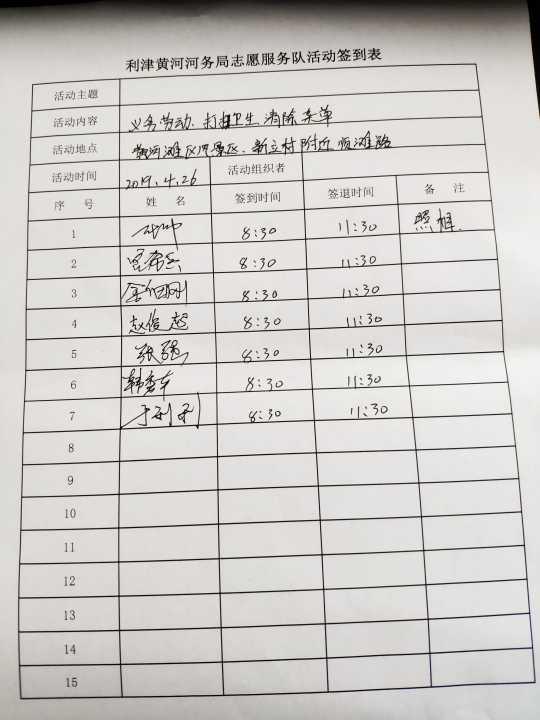 利津黄河河务局志愿服务队活动签到表
活动主题
活动内容 义务劳动、打扫卫生 清除杂草
活动地点 黄河滩区风景区、新立村附近 顺滩路
活动时间 2019.4.26 活动组织者
序 号 姓 名 签到时间 签退时间 备 注
1 8:30 11:30 照相
2 8:30 11:30
3 8:30 11:30
4 赵俊超 8:30 11:30
5 张强 8:30 11:30
6 韩秀东 8:30 11:30
7 于利利 8:30 11:30
8
9
10
11
12
13
14
15